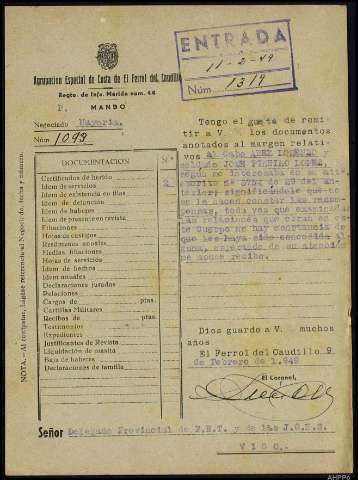 Agrupación Especial de Costa de El Ferrol del Caudillo
Regto. de Infa. Mérida núm. 44
P. MANDO
Negociado Mayoría.
Núm. 1093
ENTRADA
11-2-49
Núm. 1319
DOCUMENTACION N.º
Certificados de herido
Idem de servicios 2
Idem de existencia en filas
Idem de detención
Idem de haberes
Idem de presente en revista
Filiaciones
Hojas de castigos
Hojas de servicio
Idem de hechos
Idem anuales
Declaraciones juradas
Relaciones
Cargos de ptas.
Cartillas Militares
Recibos de ptas.
Testimonios
Expedientes
Justificantes de Revista
Liquidación de masita
Baja de haberes
Declaraciones de familia
NOTA.—Al contestar, hágase referencia al Negociado, fecha y número.
Tengo el gusto de remi-
tir a V. los documentos
anotados al margen relati-
vos al Cabo
según no interesaba en su aten.
escrito de
significándole que no
se le hacen constar las recom-
pensas, toda vez que
las relaciones que obran en este
Cuerpo no hay constancia de
que les haya sido concedida al-
guna, esperando de su atención
me acuse recibo.
Dios guarde a V. muchos
años
El Ferrol del Caudillo 9
de Febrero de 1.949
El Coronel,
Señor Delegado Provincial de F.E.T. y de las J.O.N.S.
VIGO.-
AHPPo